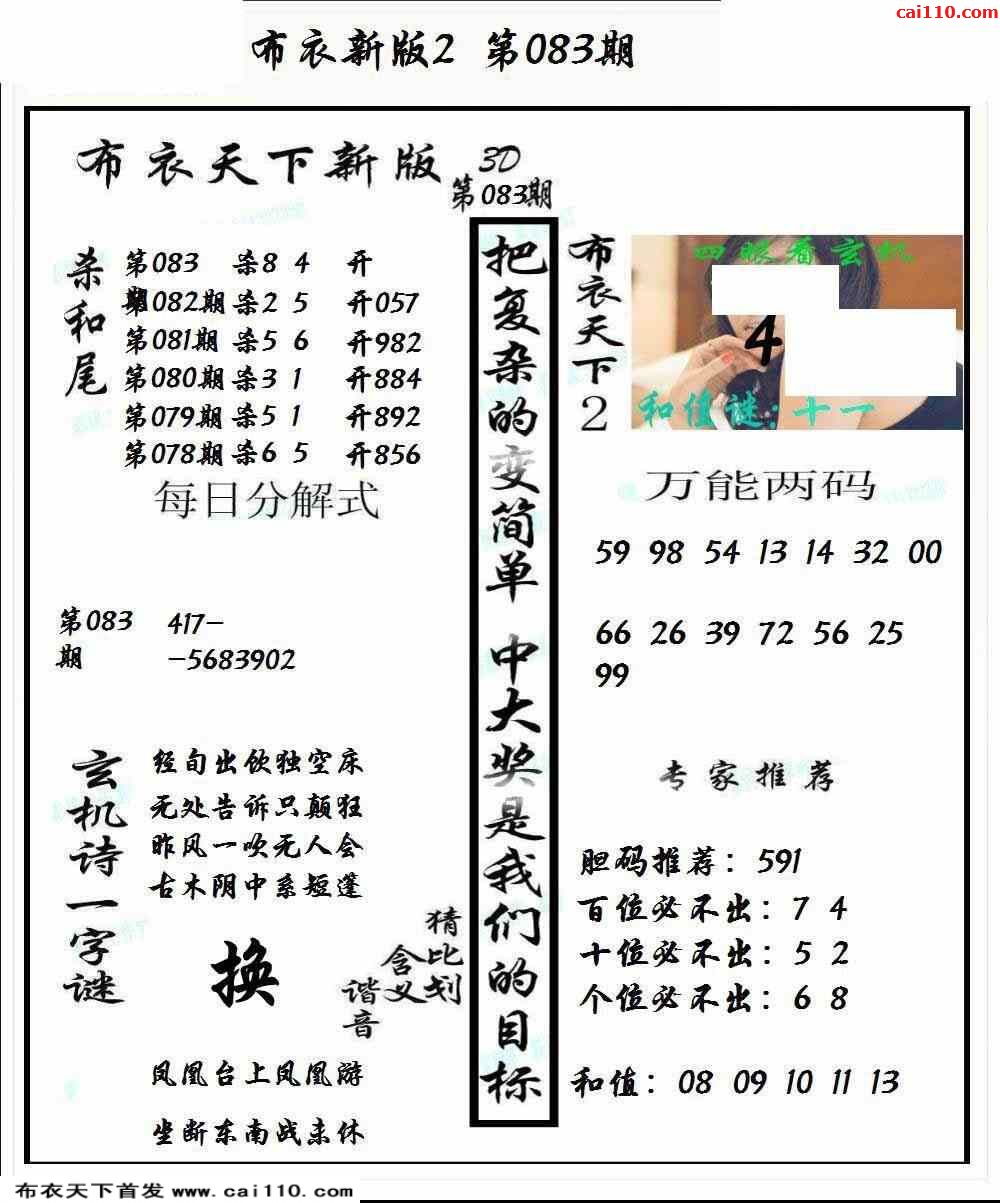 cai110.com
布衣新版2 第083期
布衣天下新版 3D
第083期
杀和尾
第083期 杀8 4 开
第082期 杀2 5 开057
第081期 杀5 6 开982
第080期 杀3 1 开884
第079期 杀5 1 开892
第078期 杀6 5 开856
每日分解式
第083期 417-
-5683902
玄机诗一字谜
经旬出饮独空床
无处告诉只颠狂
昨风一吹无人会
古木阴中系短蓬
换
猜比划
含义
谐音
凤凰台上凤凰游
坐断东南战未休
把复杂的变简单 中大奖是我们的目标
布衣天下2
四眼看玄机
4
和值谜:十一
万能两码
59 98 54 13 14 32 00
66 26 39 72 56 25
99
专家推荐
胆码推荐：591
百位必不出：7 4
十位必不出：5 2
个位必不出：6 8
和值：08 09 10 11 13
布衣天下首发 www.cai110.com